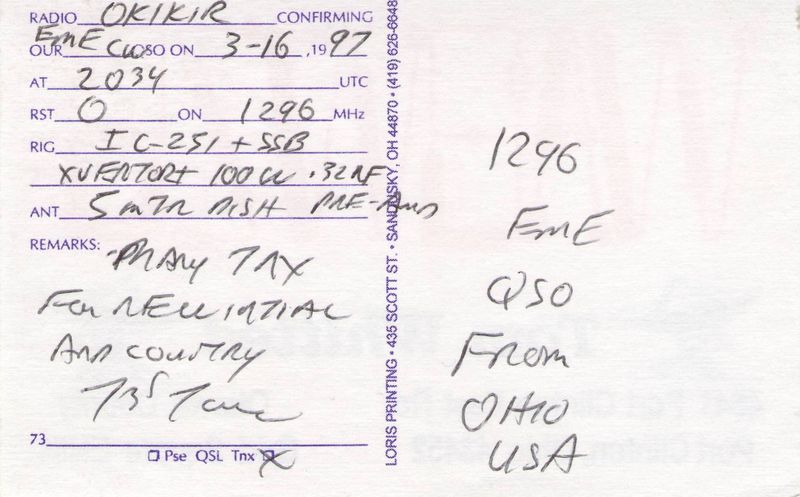 RADIO OK1KIR CONFIRMING
OUR EME CW QSO ON 3-16 , 1997
AT 2034 UTC
RST O ON 1296 MHz
RIG IC-251 + SSB
XVERTOR + 100W .32NF
ANT 5 MTR DISH PRE-AMP
REMARKS: MANY TNX
FOR NEW INITIAL
AND COUNTRY
73s Tom
73
Pse QSL Tnx X
LORIS PRINTING • 435 SCOTT ST. • SANDUSKY, OH 44870 • (419) 626-6648
1296
EME
QSO
FROM
OHIO
USA